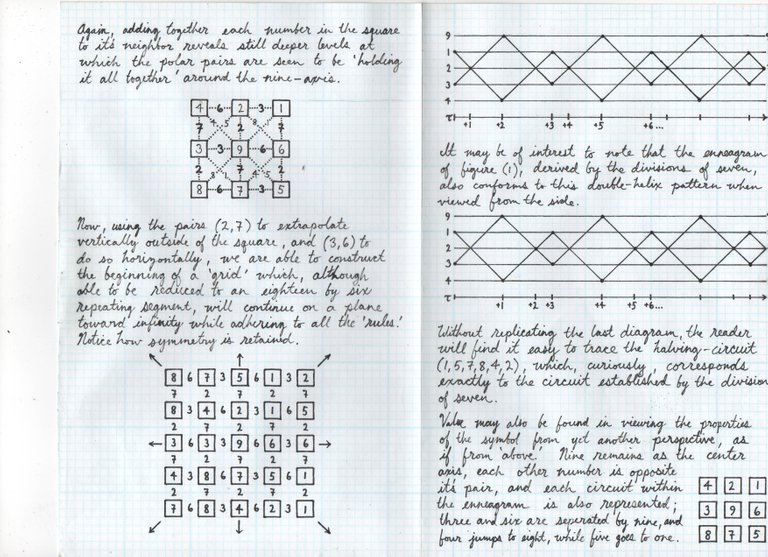 Again, adding together each number in the square
to it's neighbor reveals still deeper levels at
which the polar pairs are seen to be 'holding
it all together' around the nine-axis.
4 6 2 3 1
7 4 5 2 8 1 7
3 3 9 6 6
2 3 1 7 4 5 2
8 6 7 3 5
Now, using the pairs (2,7) to extrapolate
vertically outside of the square, and (3,6) to
do so horizontally, we are able to construct
the beginning of a 'grid' which, although
able to be reduced to an eighteen by six
repeating segment, will continue on a plane
toward infinity while adhering to all the 'rules.'
Notice how symmetry is retained.
8 6 7 3 5 6 1 3 2
7 2 7 2 7
8 3 4 6 2 3 1 6 5
2 7 2 7 2
3 6 3 3 9 6 6 3 6
7 2 7 2 7
4 3 8 6 7 3 5 6 1
2 7 2 7 2
7 6 8 3 4 6 2 3 1
9
1
2
3
4
τ +1 +2 +3 +4 +5 +6...
It may be of interest to note that the enneagram
of figure (1), derived by the divisions of seven,
also conforms to this double-helix pattern when
viewed from the side.
9
1
2
3
4
τ +1 +2 +3 +4 +5 +6...
Without replicating the last diagram, the reader
will find it easy to trace the halving-circuit
(1,5,7,8,4,2), which, curiously, corresponds
exactly to the circuit established by the division
of seven.
Value may also be found in viewing the properties
of the symbol from yet another perspective, as
if from 'above.' Nine remains as the center
axis, each other number is opposite
it's pair, and each circuit within
the enneagram is also represented;
three and six are seperated by nine, and
four jumps to eight, while five goes to one.
4 2 1
3 9 6
8 7 5